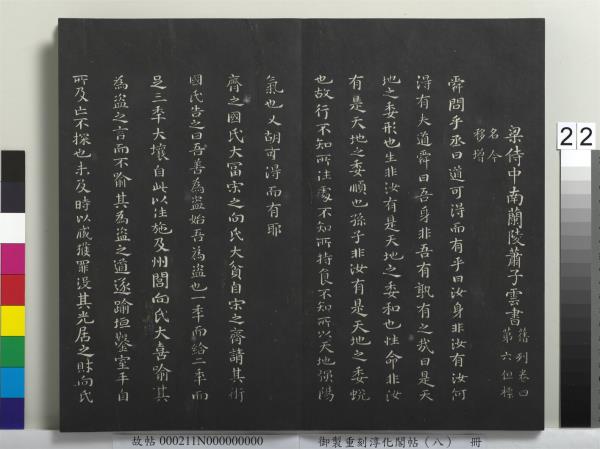 梁侍中南蘭陵蕭子雲書
舊列卷四
第六但標
名今
移增
舜問乎丞曰道可得而有乎曰汝身非汝有汝何
得有夫道舜曰吾身非吾有孰有之哉曰是天
地之委形也生非汝有是天地之委和也性命非汝
有是天地之委順也孫子非汝有是天地之委蛻
也故行不知所往處不知所持食不知所以天地強陽
氣也又胡可得而有耶
齊之國氏大富宋之向氏大貧自宋之齊請其術
國氏告之曰吾善為盜始吾為盜也一年而給二年而
足三年大壤自此以往施及州閭向氏大喜喻其
為盜之言而不喻其為盜之道遂踰垣鑿室手自
所及亡不探也未及時以臧獲罪没其先居之財向氏
22
故帖 000211N000000000 御製重刻淳化閣帖（八） 冊